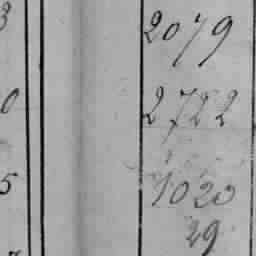 3
2079
0
2722
5
1020
29